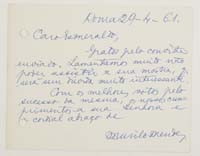 Roma 29-4-61.
Caro Esmeraldo,
Grato pelo convite
enviado. Lamentamos muito não
poder assistir a sua mostra,
muito interessante.
Com os melhores votos pelo
sucesso da mesma,
cumprimentos à sua senhora e
cordial abraço de
Murilo Mendes